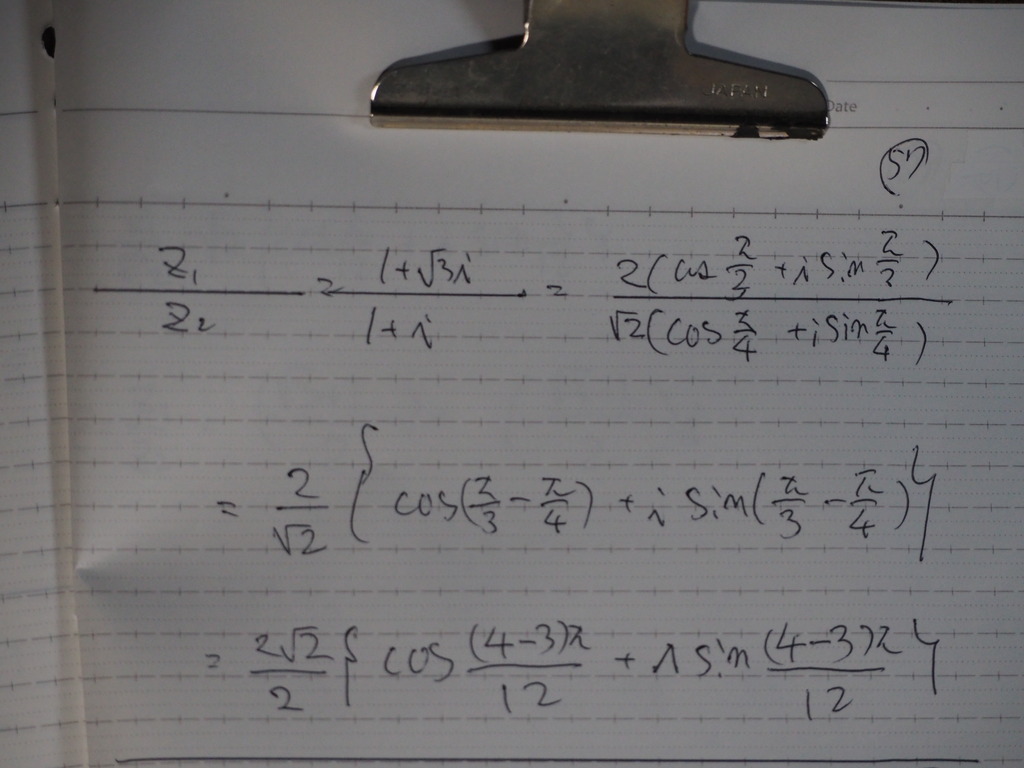 JAPAN
Date
57
Z₁/Z₂ = (1+√3i)/(1+i) = 2(cos π/3 + i sin π/3)/√2(cos π/4 + i sin π/4)
= 2/√2 {cos(π/3 - π/4) + i sin(π/3 - π/4)}
= 2√2/2 {cos (4-3)π/12 + i sin (4-3)π/12}